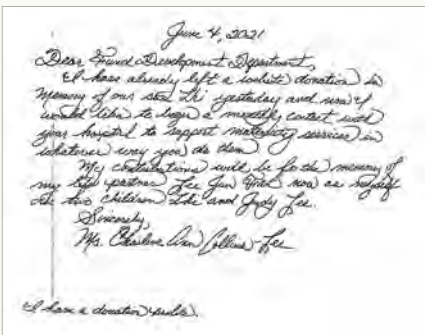 June 4, 2021
Dear Fund Development Department,
I have already left a website donation in
memory of our son yesterday and now I
would like to begin a monthly contact with
your hospital to support maternity services in
whatever way you do them
My contributions will be for the memory of
my life partner Lee Gun now as myself
two children and Judy Lee.
Sincerely,
Ms. Charlene Ann Collins-Lee
I have a donation profile.